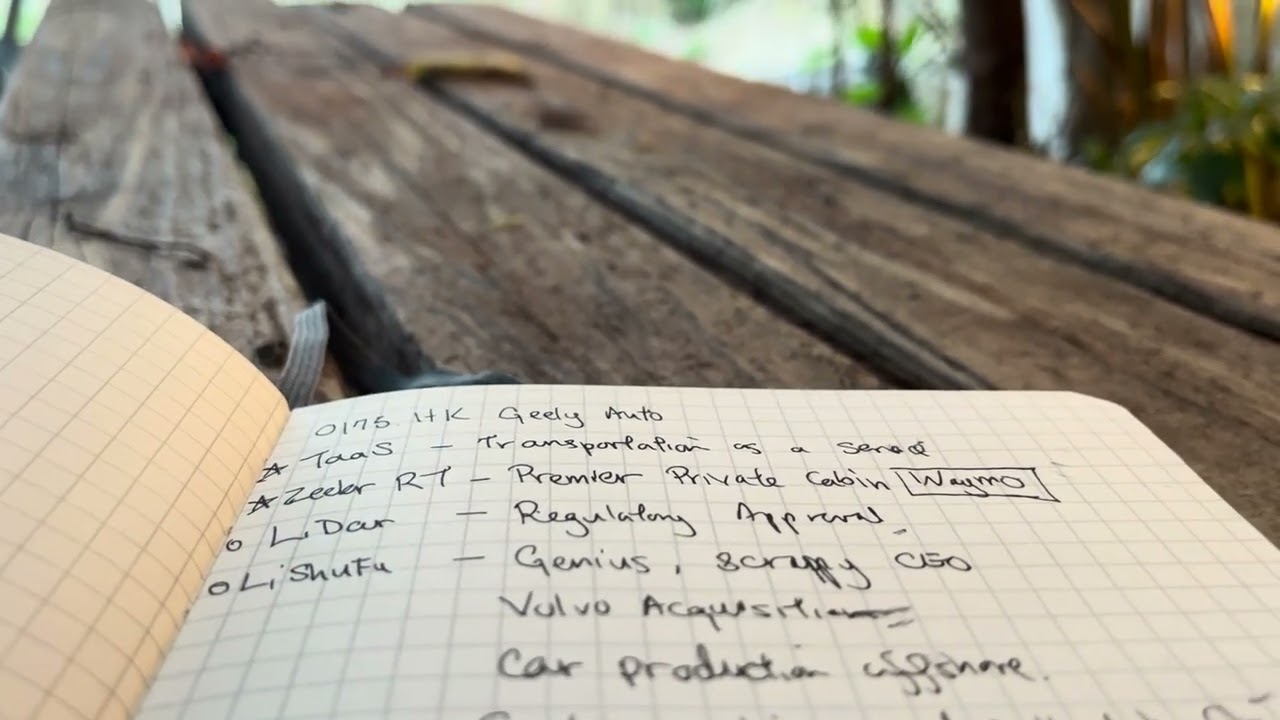 0175 HK Geely Auto
☆ TaaS - Transportation as a
☆ Zeekr RT - Premier Private Cabin Waymo
o LiDar - Regulatory Approval
o Li ShuFu - Genius, Scrappy CEO
Volvo Acquisition
Car production offshore.